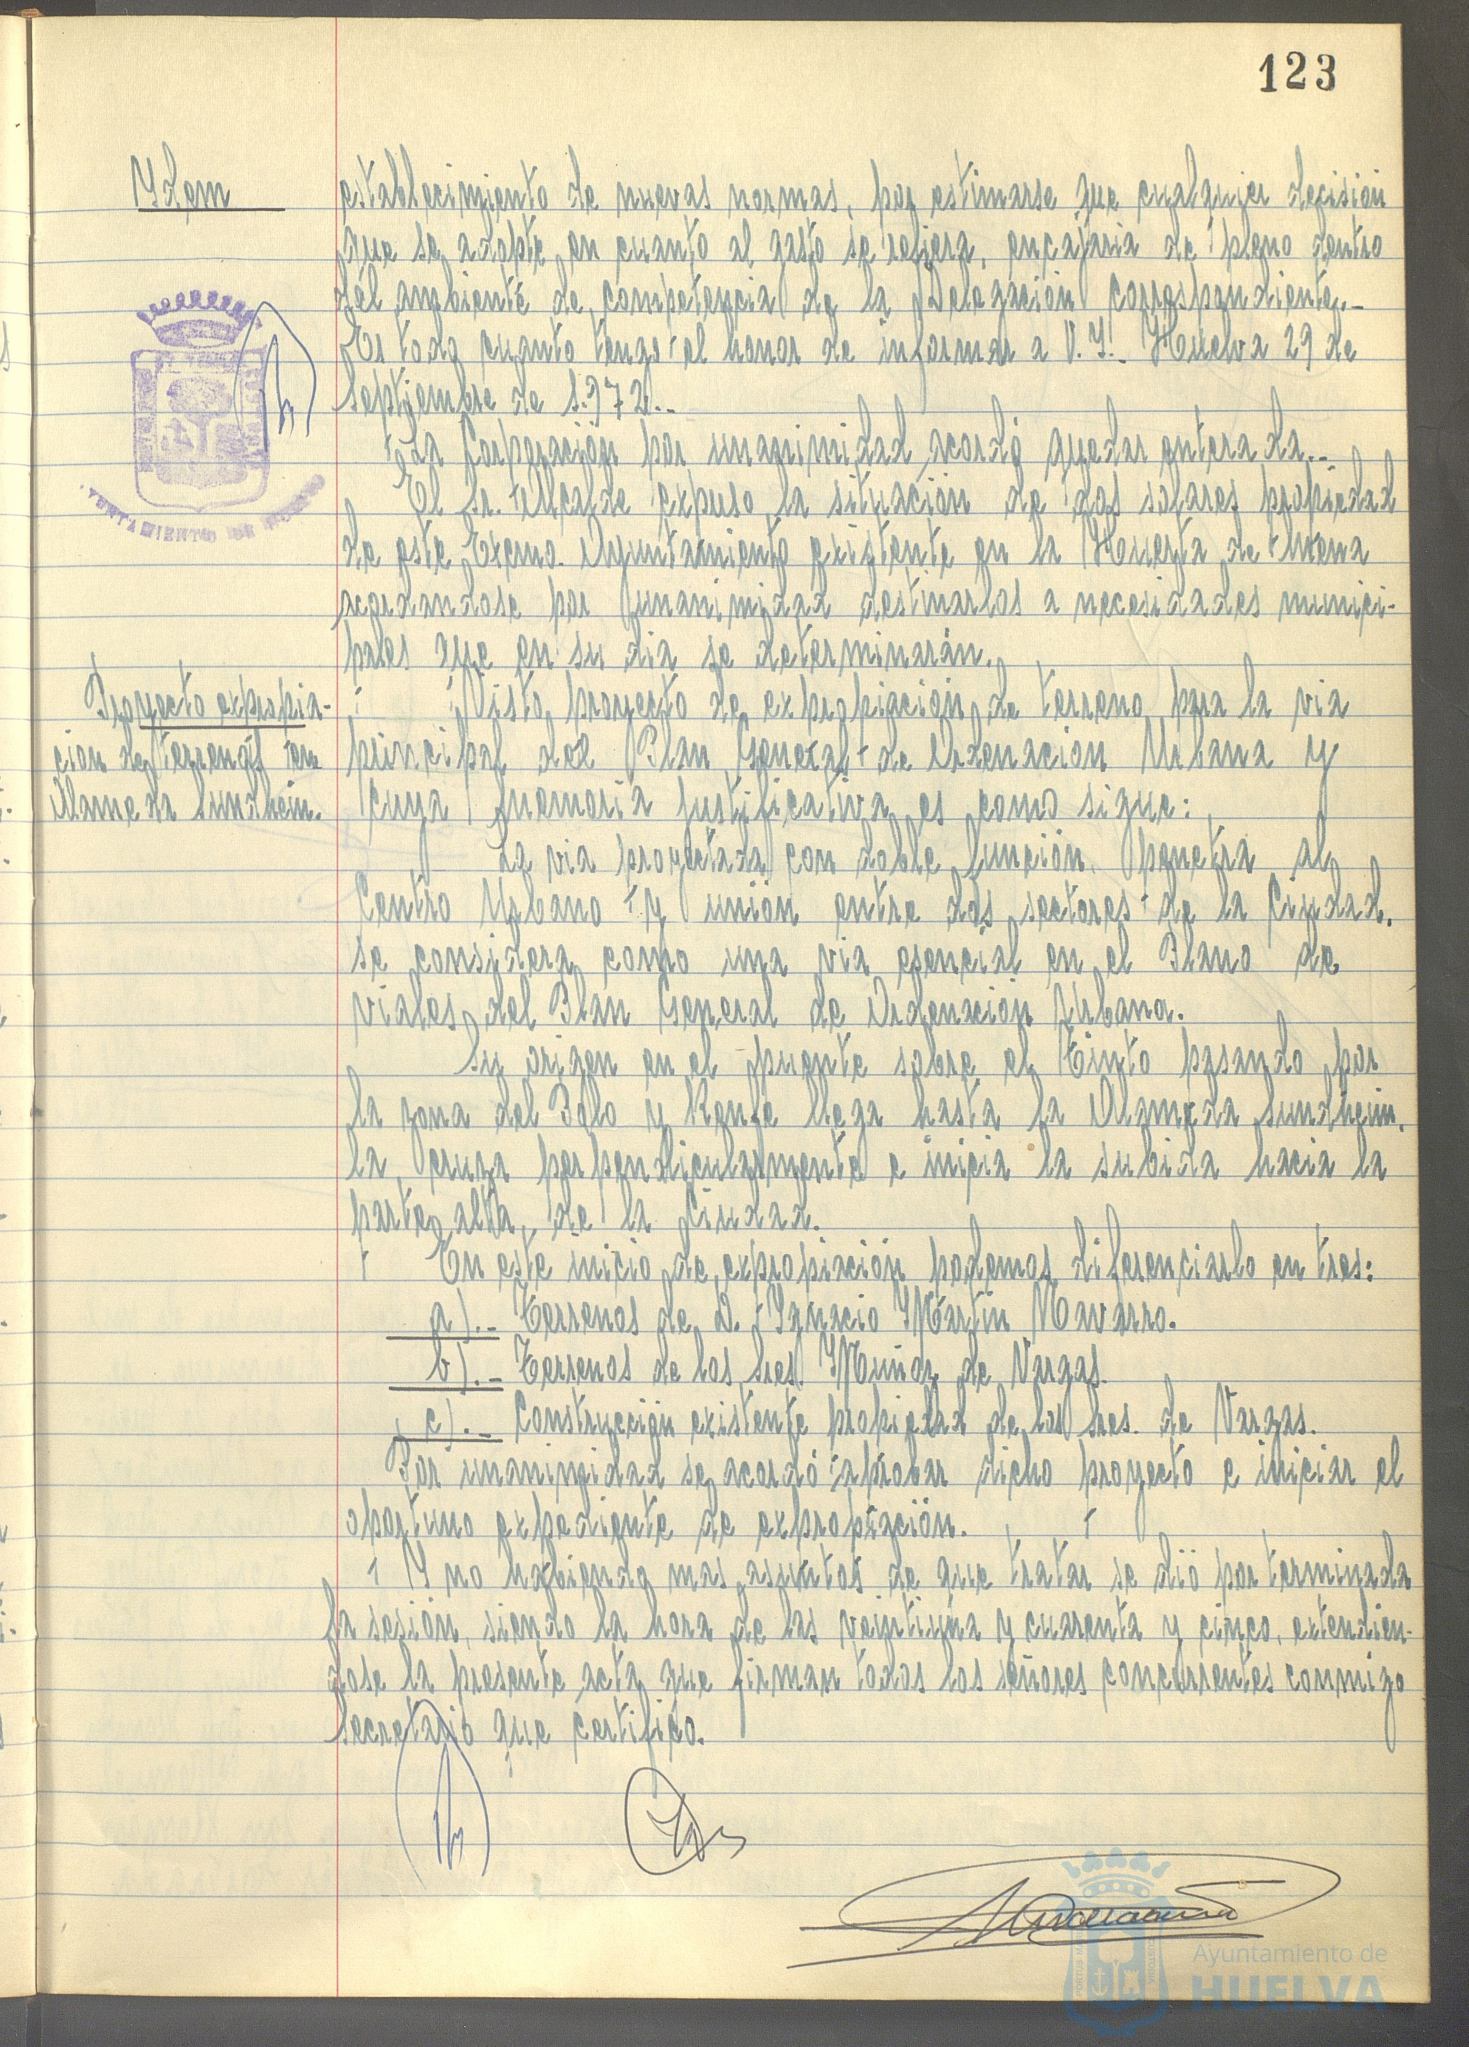 123
Ydem
establecimiento de nuevas normas, por estimarse que cualquier decisión
que se adopte en cuanto al gasto se refiera, encajaria de pleno dentro
del ambiente de competencia de la Delegación Correspondiente.-
Es todo cuanto tengo el honor de informar a V.Y. Huelva 29 de
Septiembre de 1.972.-
La Corporación por unanimidad acordó quedar enterada.-
El Sr. Alcalde expuso la situación de dos solares propiedad
de este Excmo. Ayuntamiento existente en la Huerta de Mena
acordandose por unanimidad destinarlos a necesidades munici-
pales que en su dia se determinarán.
Proyecto expropia-
cion de terrenos en
Alameda Sundheim.
Visto proyecto de expropiación de terreno para la via
principal del Plan General de Ordenación Urbana y
cuya memoria justificativa es como sigue:
La via proyectada con doble función, penetra al
Centro Urbano y unión entre dos sectores de la Ciudad.
se considera como una via esencial en el Plano de
viales del Plan General de Ordenación Urbana.
Su origen en el puente sobre el Tinto pasando por
la zona del Polo y Renfe llega hasta la Alameda Sundheim.
la cruza perpendicularmente e inicia la subida hacia la
parte alta de la Ciudad.
En este inicio de expropiación podemos diferenciarlo en tres:
a).- Terrenos de D. Ignacio Martín Navarro.
b).- Terrenos de los Sres. Muñoz de Vargas.
c).- Construcción existente propiedad de los Sres. de Vargas.
Por unanimidad se acordó aprobar dicho proyecto e iniciar el
oportuno expediente de expropiación.
Y no habiendo mas asuntos de que tratar se dió por terminada
la sesión, siendo la hora de las veintiuna y cuarenta y cinco, extendien-
dose la presente acta que firman todos los señores concurrentes conmigo
Secretario que certifico.
Ayuntamiento de
HUELVA